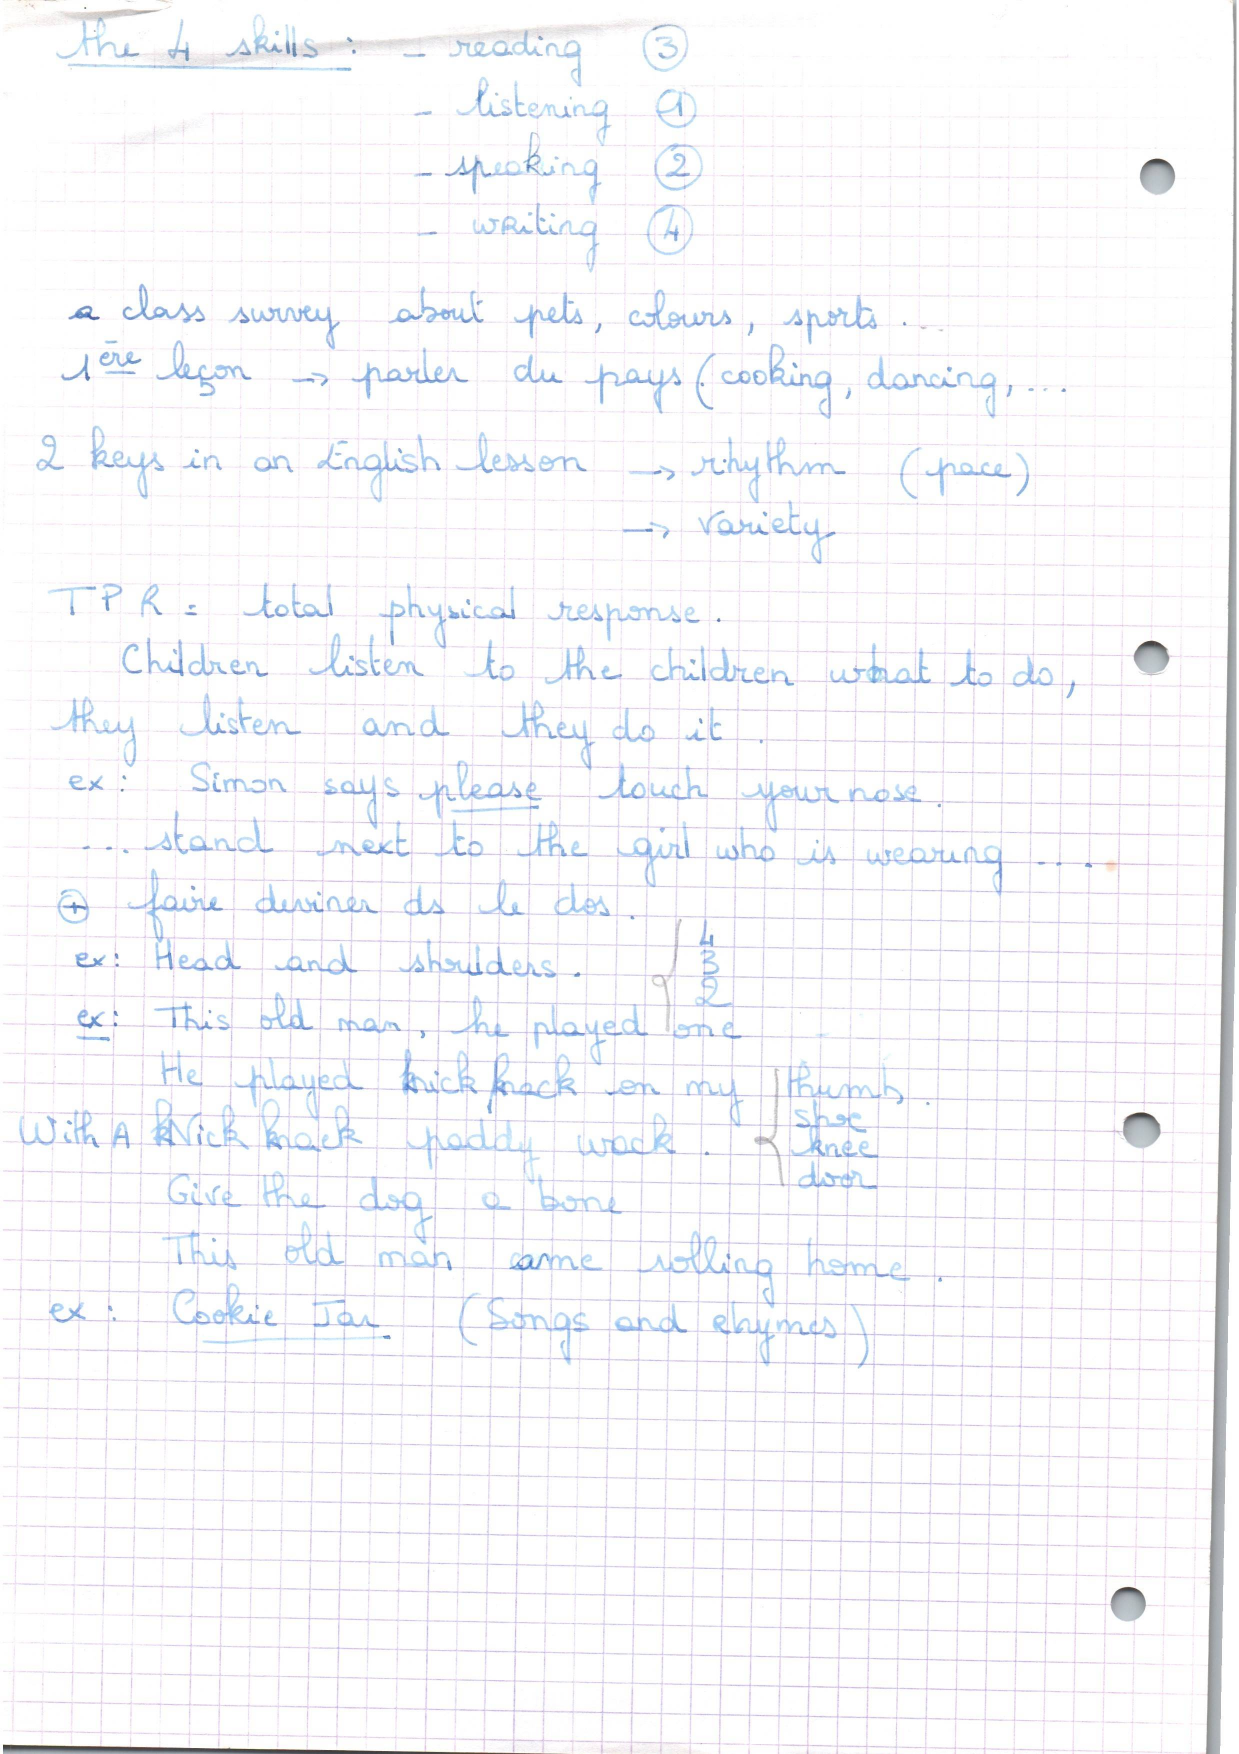 the 4 skills : - reading ③
- listening ①
- speaking ②
- writing ④
a class survey about pets, colours, sports ...
1ère leçon → parler du pays (cooking, dancing, ...
2 keys in an English lesson → rhythm (pace)
→ variety
TPR = total physical response.
Children listen to the children what to do,
they listen and they do it.
ex : Simon says please touch your nose.
... stand next to the girl who is wearing ....
⊕ faire deviner ds le dos.
4
ex : Head and shoulders. 3
2
ex : This old man, he played one
He played knick knack on my thumb.
shoe
With A kNick knack paddy wack. knee
door
Give the dog a bone
This old man came rolling home.
ex : Cookie Jar (Songs and rhymes)